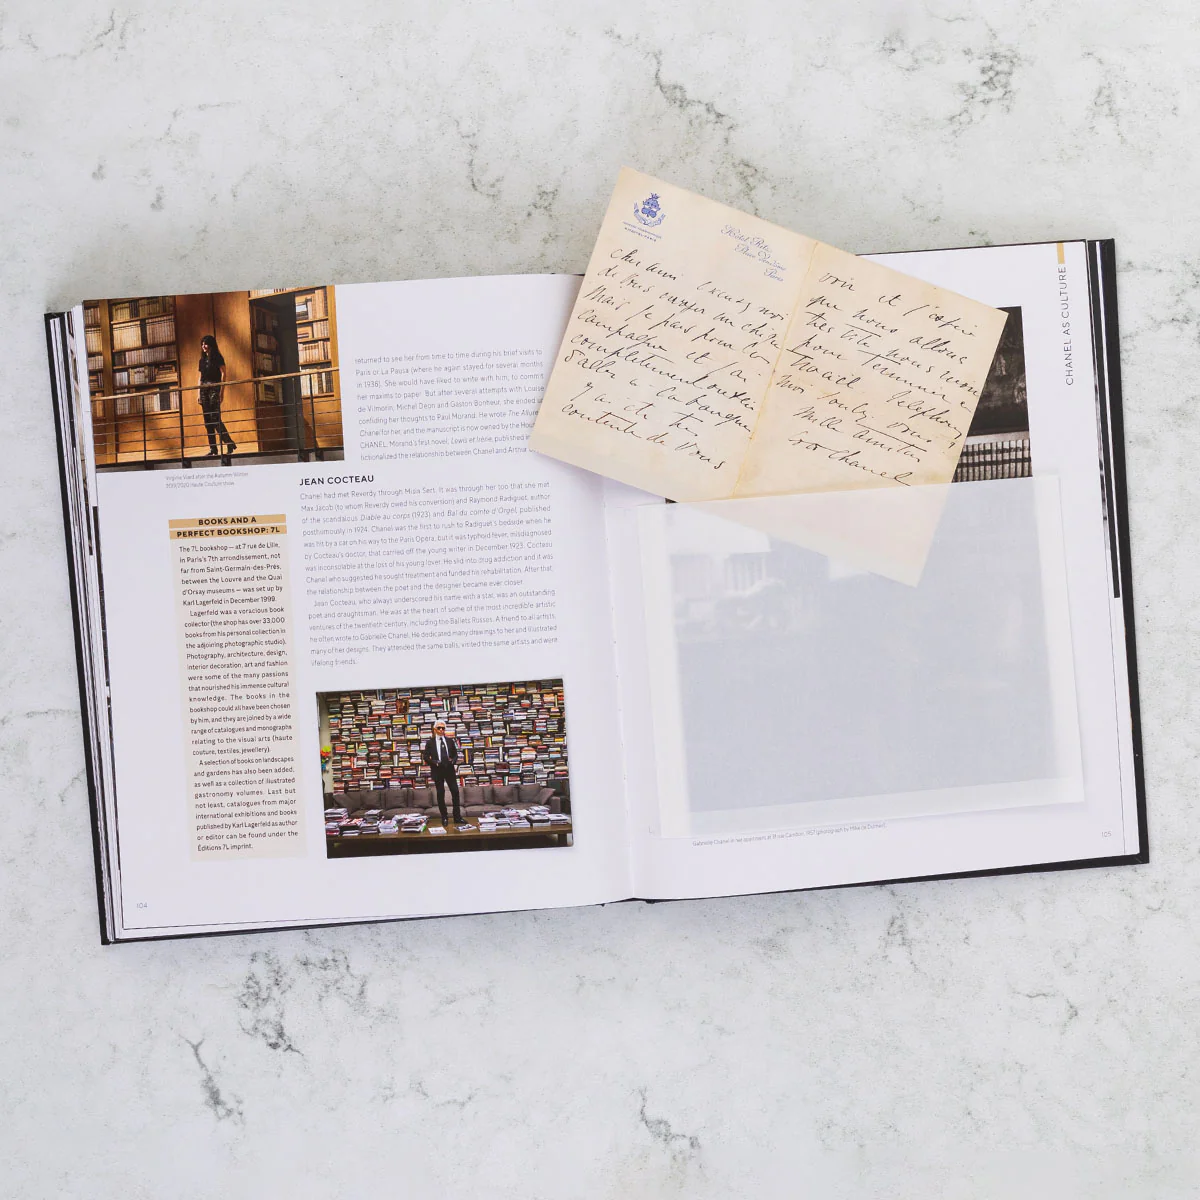 returned to see her from time to time during his brief visits to
Paris or La Pausa (where he again stayed for several months
in 1936). She would have liked to write with him, to commit
her maxims to paper. But after several attempts with Louise
de Vilmorin, Michel Déon and Gaston Bonheur, she ended
confiding her thoughts to Paul Morand. He wrote The Allure
Chanel for her, and the manuscript is now owned by the Hou
CHANEL. Morand's first novel, Lewis et Irène, published in
fictionalized the relationship between Chanel and Arthur
Virginie Viard after the Autumn-Winter
2019/2020 Haute Couture show.
JEAN COCTEAU
Chanel had met Reverdy through Misia Sert. It was through her too that she met
Max Jacob (to whom Reverdy owed his conversion) and Raymond Radiguet, author
of the scandalous Diable au corps (1923) and Bal du comte d'Orgel, published
posthumously in 1924. Chanel was the first to rush to Radiguet's bedside when he
was hit by a car on his way to the Paris Opera, but it was typhoid fever, misdiagnosed
by Cocteau's doctor, that carried off the young writer in December 1923. Cocteau
was inconsolable at the loss of his young lover. He slid into drug addiction and it was
Chanel who suggested he sought treatment and funded his rehabilitation. After that
the relationship between the poet and the designer became ever closer.
Jean Cocteau, who always underscored his name with a star, was an outstanding
poet and draughtsman. He was at the heart of some of the most incredible artistic
ventures of the twentieth century, including the Ballets Russes. A friend to all artists,
he often wrote to Gabrielle Chanel. He dedicated many drawings to her and illustrated
many of her designs. They attended the same balls, visited the same artists and were
lifelong friends.
BOOKS AND A
PERFECT BOOKSHOP: 7L
The 7L bookshop — at 7 rue de Lille,
in Paris's 7th arrondissement, not
far from Saint-Germain-des-Prés,
between the Louvre and the Quai
d'Orsay museums — was set up by
Karl Lagerfeld in December 1999.
Lagerfeld was a voracious book
collector (the shop has over 33,000
books from his personal collection in
the adjoining photographic studio).
Photography, architecture, design,
interior decoration, art and fashion
were some of the many passions
that nourished his immense cultural
knowledge. The books in the
bookshop could all have been chosen
by him, and they are joined by a wide
range of catalogues and monographs
relating to the visual arts (haute
couture, textiles, jewellery).
A selection of books on landscapes
and gardens has also been added,
as well as a collection of illustrated
gastronomy volumes. Last but
not least, catalogues from major
international exhibitions and books
published by Karl Lagerfeld as author
or editor can be found under the
Éditions 7L imprint.
104
Hôtel Ritz
Place Vendôme
Paris
cher ami. excusez moi
de vous
Mais je pars pour la
campagne et j'ai
complètement
d'aller à la banque
très
contente de vous
voir et j'espère
que nous allons
très vite nous
pour
travail
moi vous
Mille amitiés
Chanel
CHANEL AS CULTURE
Gabrielle Chanel in her apartment at 31 rue Cambon, 1957 (photograph by Mike de Dulmen).
105